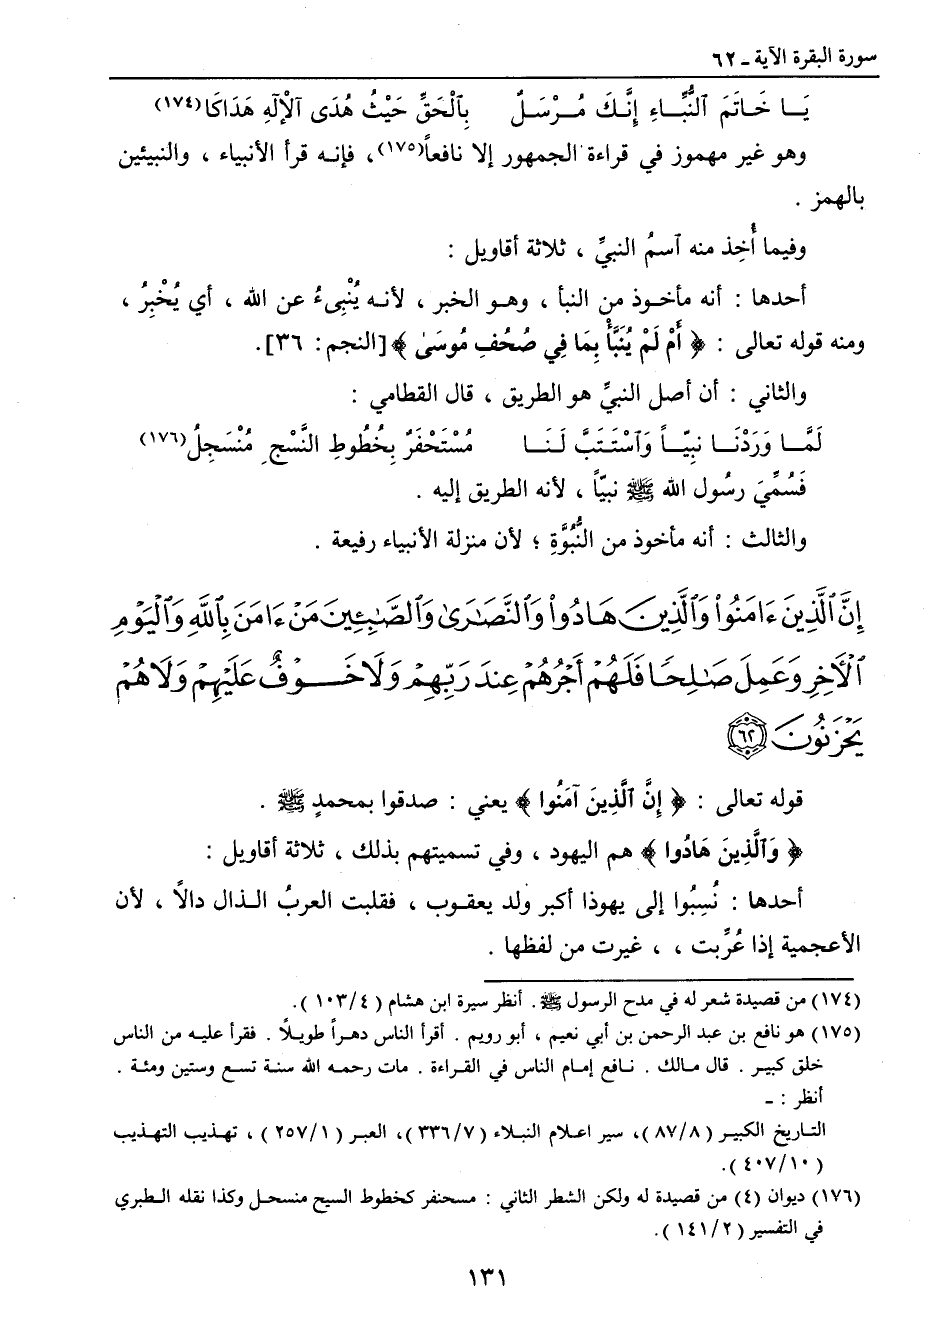 سورة البقرة الآية ـ ٦٢
يَـا خَاتَمَ ٱلنُّبَّاءِ إِنَّكَ مُـرْسَلٌ بِٱلْحَقِّ حَيْثُ هُدَى ٱلْإِلٰهِ هَدَاكَا(١٧٤)
وهو غير مهموز في قراءة الجمهور إلا نافعاً(١٧٥)، فإنـه قرأ الأنبياء ، والنبيئين
بالهمز .
وفيما أُخِذ منه ٱسمُ النبيِّ ، ثلاثة أقاويل :
أحدها : أنه مأخـوذ من النبأ ، وهـو الخبر ، لأنـه يُنْبِىءُ عن الله ، أي يُخْبِرُ ،
ومنه قوله تعالى : ﴿ أَمْ لَمْ يُنَبَّأْ بِمَا فِي صُحُفِ مُوسَىٰ ﴾ [النجم: ٣٦].
والثاني : أن أصل النبيِّ هو الطريق ، قال القطامي :
لَمَّـا وَرَدْنَـا نبِيّـاً وَٱسْتَتَبَّ لَـنَـا مُسْتَحْفَرٌ بِخُطُوطِ النَّسْجِ مُنْسَجِلُ(١٧٦)
فَسُمِّيَ رسُول الله ﷺ نبيّاً ، لأنه الطريق إليه .
والثالث : أنه مأخوذ من النُّبُوَّةِ ؛ لأن منزلة الأنبياء رفيعة .
إِنَّ ٱلَّذِينَ ءَامَنُوا۟ وَٱلَّذِينَ هَادُوا۟ وَٱلنَّصَـٰرَىٰ وَٱلصَّـٰبِـِٔينَ مَنْ ءَامَنَ بِٱللَّهِ وَٱلْيَوْمِ
ٱلْـَٔاخِرِ وَعَمِلَ صَـٰلِحًا فَلَهُمْ أَجْرُهُمْ عِندَ رَبِّهِمْ وَلَا خَوْفٌ عَلَيْهِمْ وَلَا هُمْ
يَحْزَنُونَ ٦٢
قوله تعالى : ﴿ إِنَّ ٱلَّذِينَ آمَنُوا ﴾ يعني : صدقوا بمحمدٍ ﷺ .
﴿ وَٱلَّذِينَ هَادُوا ﴾ هم اليهود ، وفي تسميتهم بذلك ، ثلاثة أقاويل :
أحدها : نُسِبُوا إلى يهوذا أكبر ولد يعقـوب ، فقلبت العربُ الـذال دالاً ، لأن
الأعجمية إذا عُرِّبت ، ، غيرت من لفظها .
(١٧٤) من قصيدة شعر له في مدح الرسول ﷺ . أنظر سيرة ابن هشام (١٠٣/٤).
(١٧٥) هو نافع بن عبد الرحمن بن أبي نعيم ، أبو رويم . أقرأ الناس دهـراً طويـلاً . فقرأ عليـه من الناس
خلق كبيـر . قال مـالك . نـافع إمـام الناس في القـراءة . مات رحمـه الله سنـة تسـع وستين ومئـة .
أنظر : ـ
التـاريخ الكبيـر (٨٧/٨)، سير اعـلام النبـلاء (٣٣٦/٧)، العبـر (٢٥٧/١) ، تهـذيب التهـذيب
(٤٠٧/١٠).
(١٧٦) ديوان (٤) من قصيدة له ولكن الشطر الثاني : مسحنفر كخطوط السيح منسحـل وكذا نقله الـطبري
في التفسير (١٤١/٢).
١٣١